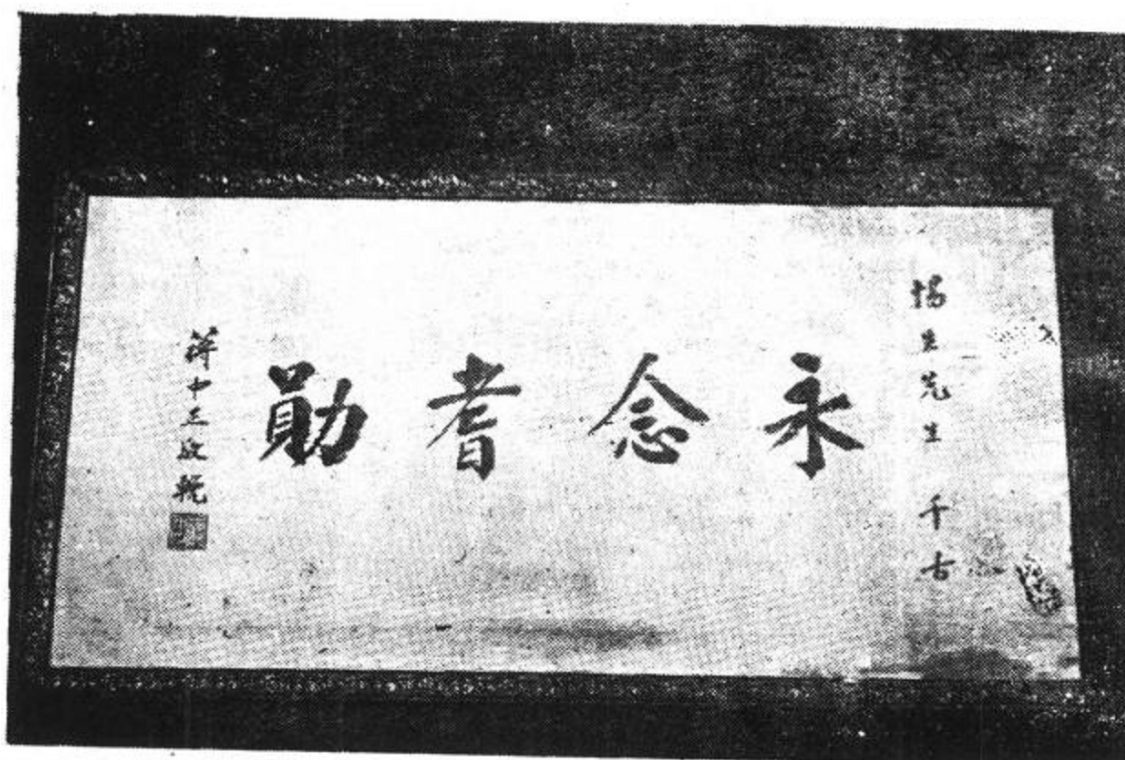 惕生先生 千古
永念耆勛
蔣中正敬輓